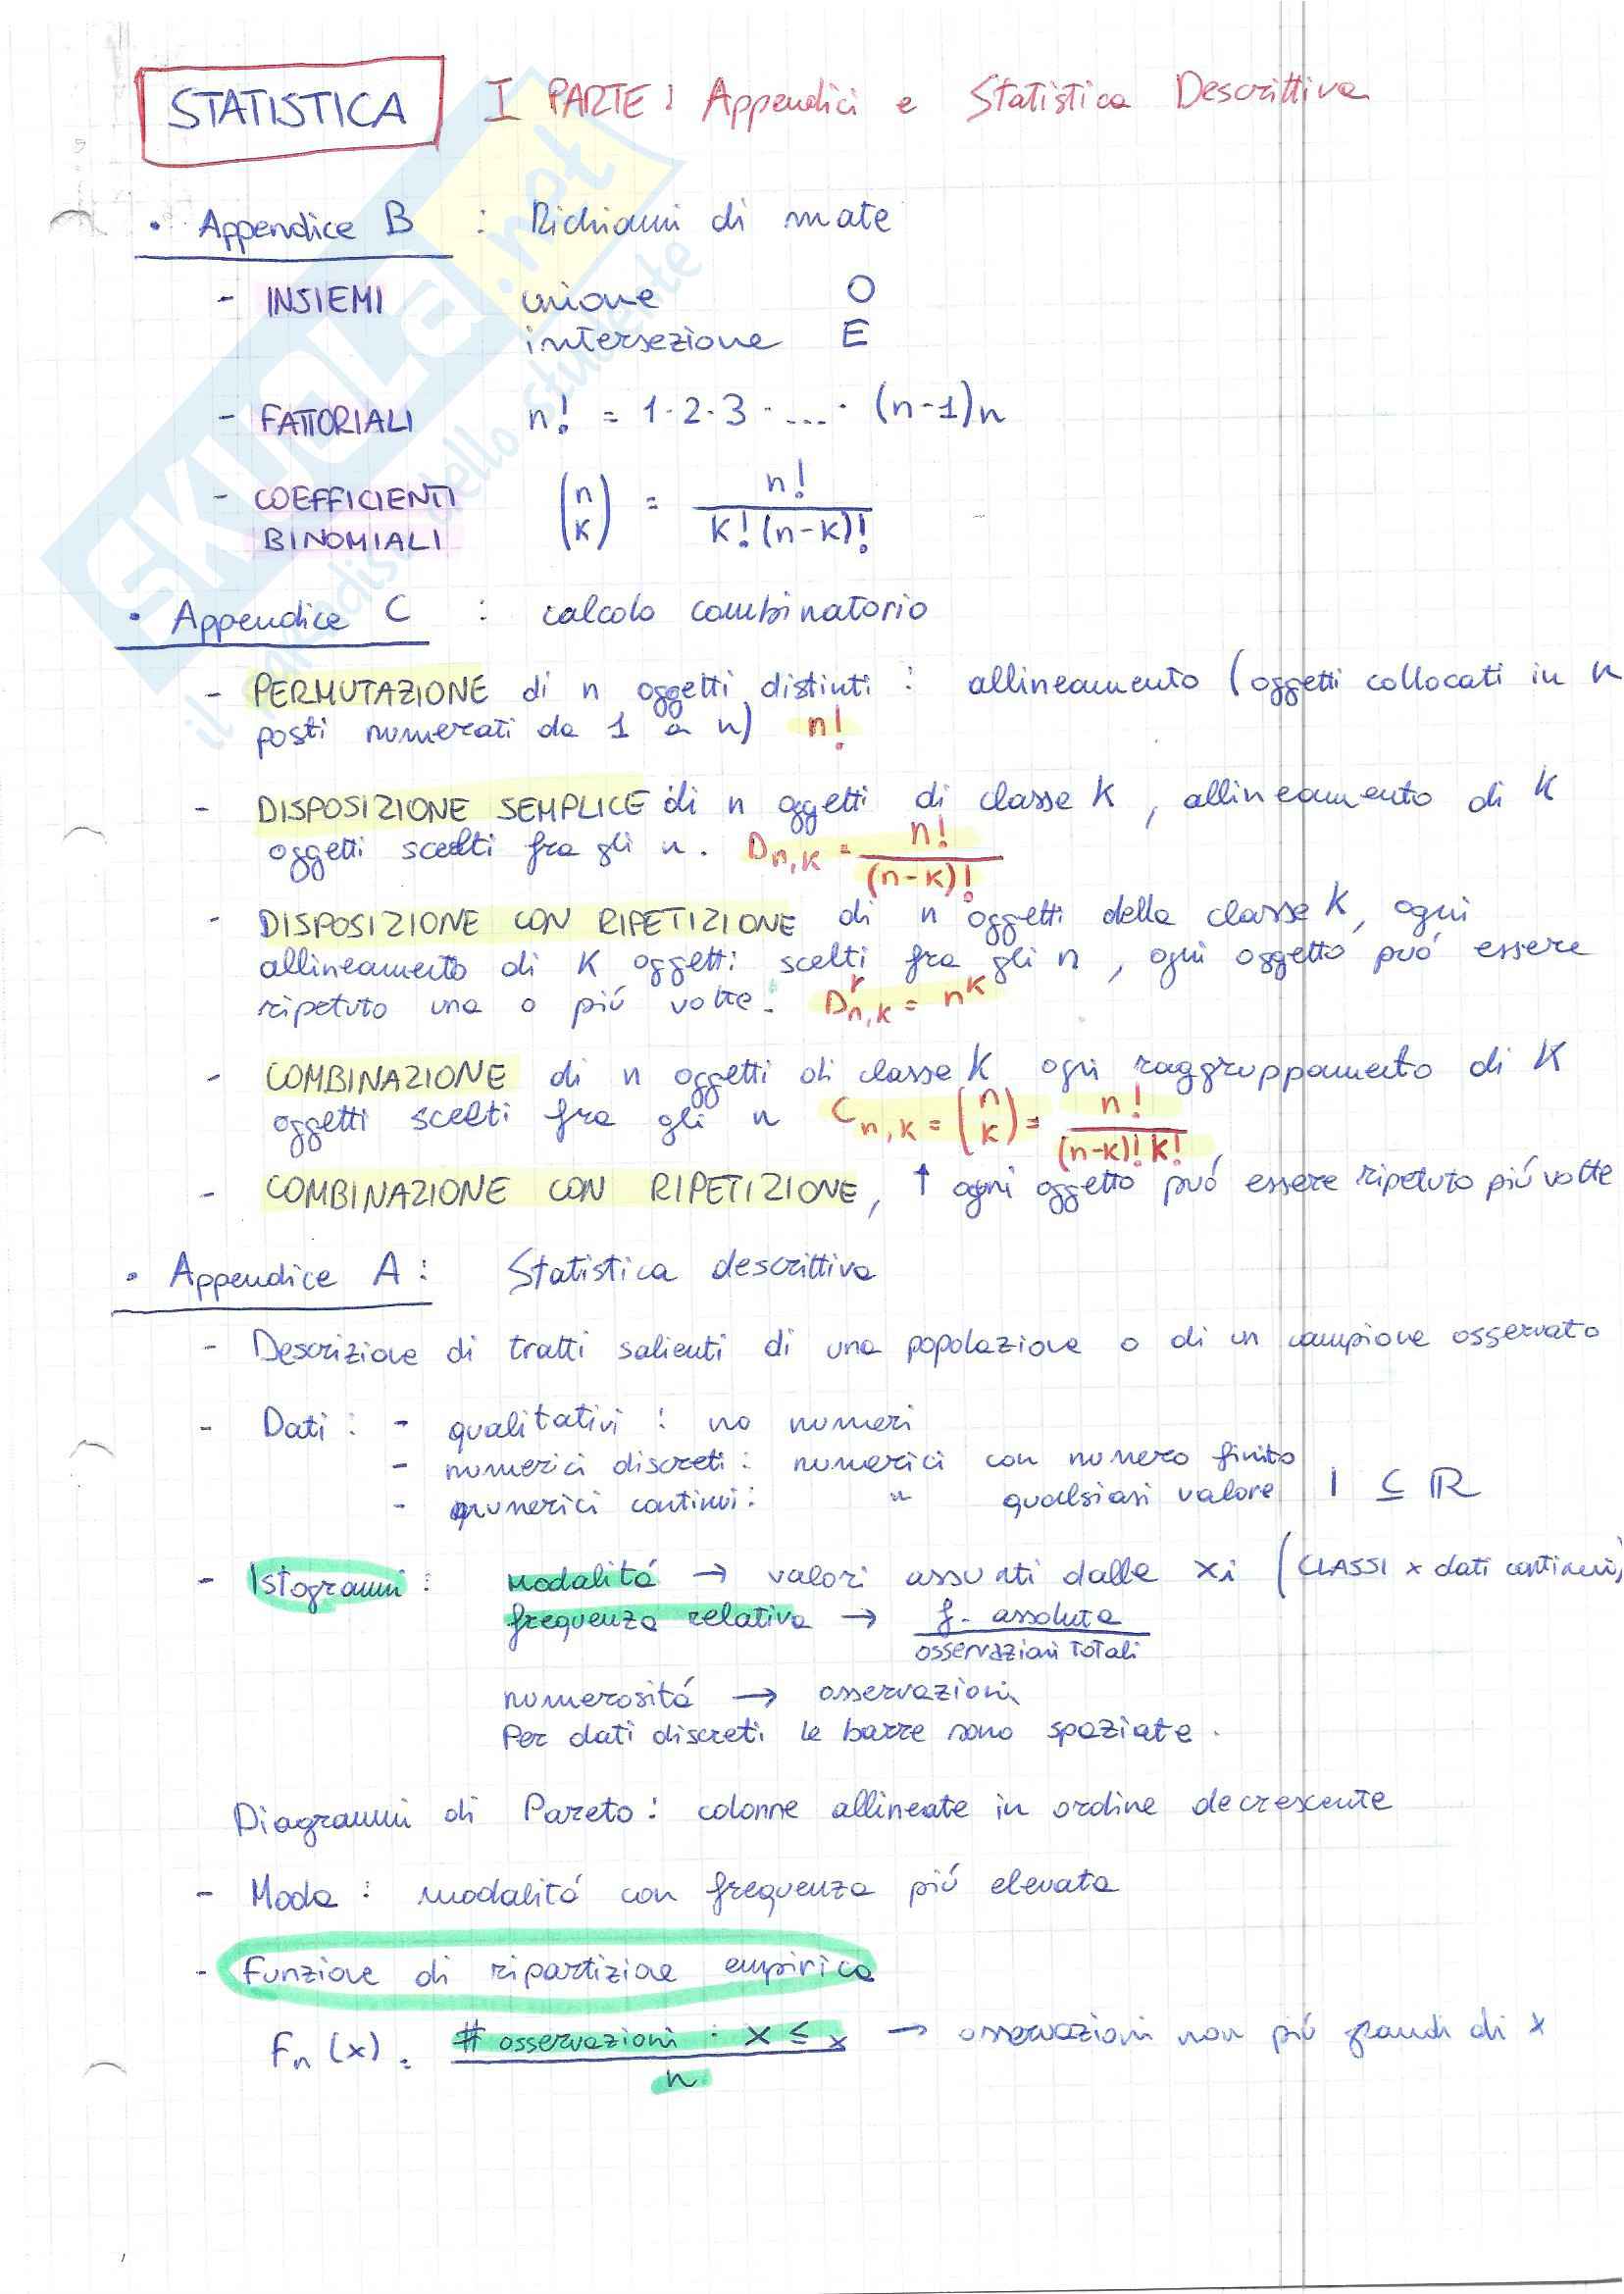 STATISTICA I PARTE: Appendici e Statistica Descrittiva
• Appendice B : Richiami di mate
- INSIEMI unione O
intersezione E
- FATTORIALI n! = 1·2·3·...·(n-1)n
- COEFFICIENTI BINOMIALI (n k) = n! / k!(n-k)!
• Appendice C : calcolo combinatorio
- PERMUTAZIONE di n oggetti distinti : allineamento (oggetti collocati in n
posti numerati da 1 a n) n!
- DISPOSIZIONE SEMPLICE di n oggetti di classe k, allineamento di k
oggetti scelti fra gli n. Dn,k = n! / (n-k)!
- DISPOSIZIONE CON RIPETIZIONE di n oggetti della classe k, ogni
allineamento di k oggetti scelti fra gli n, ogni oggetto puó essere
ripetuto una o piú volte. D^r n,k = n^k
- COMBINAZIONE di n oggetti di classe k ogni raggruppamento di k
oggetti scelti fra gli n Cn,k = (n k) = n! / (n-k)! k!
- COMBINAZIONE CON RIPETIZIONE, ↑ ogni oggetto puó essere ripetuto piú volte
• Appendice A : Statistica descrittiva
- Descrizione di tratti salienti di una popolazione o di un campione osservato
- Dati : - qualitativi : no numeri
- numerici discreti : numerici con numero finito
- numerici continui : " qualsiasi valore I ⊆ ℝ
- Istogrammi : modalitá → valori assunti dalle xi (CLASSI x dati continui)
frequenza relativa → f. assoluta / osservazioni totali
numerositá → osservazioni
Per dati discreti le barre sono spaziate.
Diagrammi di Pareto : colonne allineate in ordine decrescente
- Moda : modalitá con frequenza piú elevata
- Funzione di ripartizione empirica
Fn(x) = # osservazioni : x ≤ x / n → osservazioni non piú grandi di x
SKUOLA.net
il paradiso dello studente